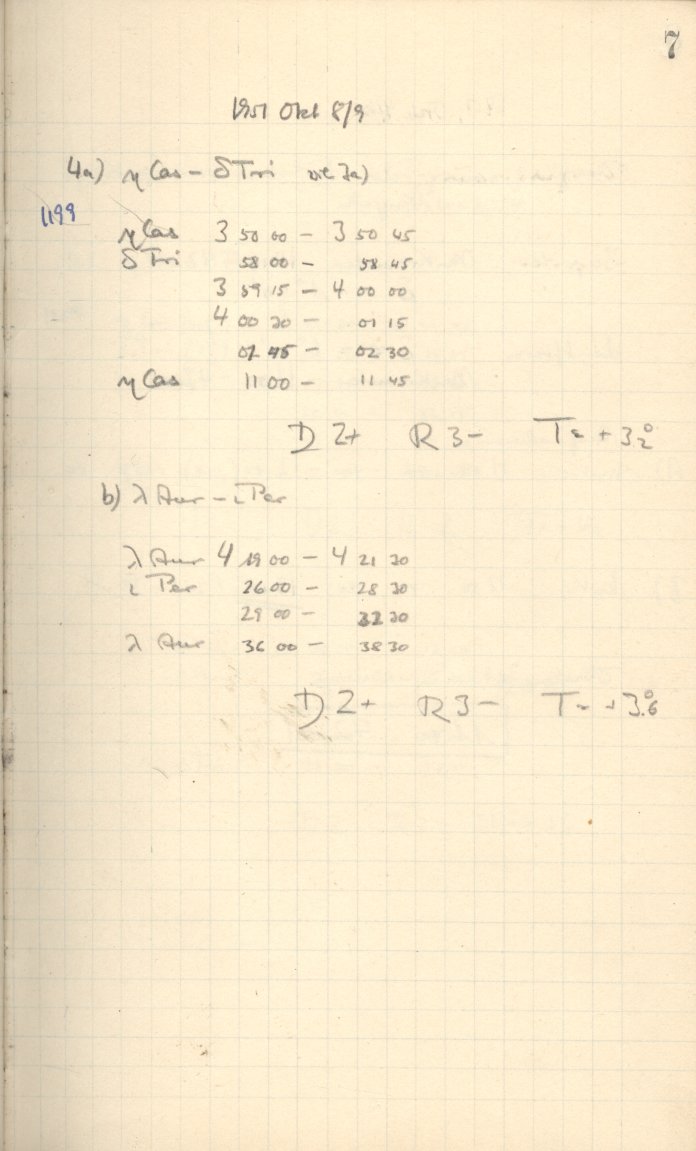 7
1951 Okt 8/9
4a) η Cas – δ Tri wie 3a)
1199
η Cas 3 50 00 – 3 50 45
δ Tri 58 00 – 58 45
3 59 15 – 4 00 00
4 00 30 – 01 15
01 45 – 02 30
η Cas 11 00 – 11 45
D 2+ R 3– T = +3°2
b) λ Aur – ι Per
λ Aur 4 19 00 – 4 21 30
ι Per 26 00 – 28 30
29 00 – 30
λ Aur 36 00 – 38 30
D 2+ R 3– T = +3°.6